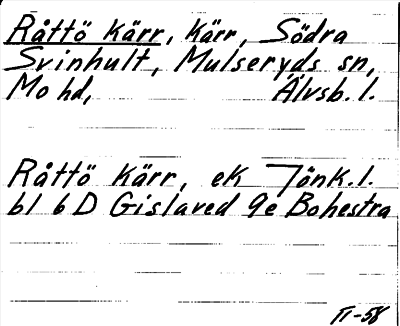 Råttö kärr, kärr, Södra
Svinhult, Mulseryds sn,
Mo hd, Älvsb. l.
Råttö kärr, ek Jönk. l.
bl 6 D Gislaved 9e Bohestra
II-58